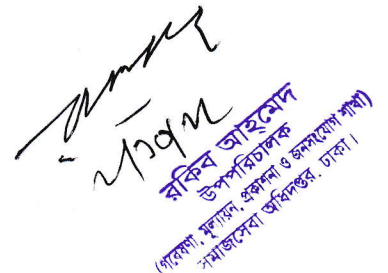 রকিব আহমেদ
উপপরিচালক
(গবেষণা, মূল্যায়ন, প্রকাশনা ও জনসংযোগ শাখা)
সমাজসেবা অধিদপ্তর, ঢাকা।